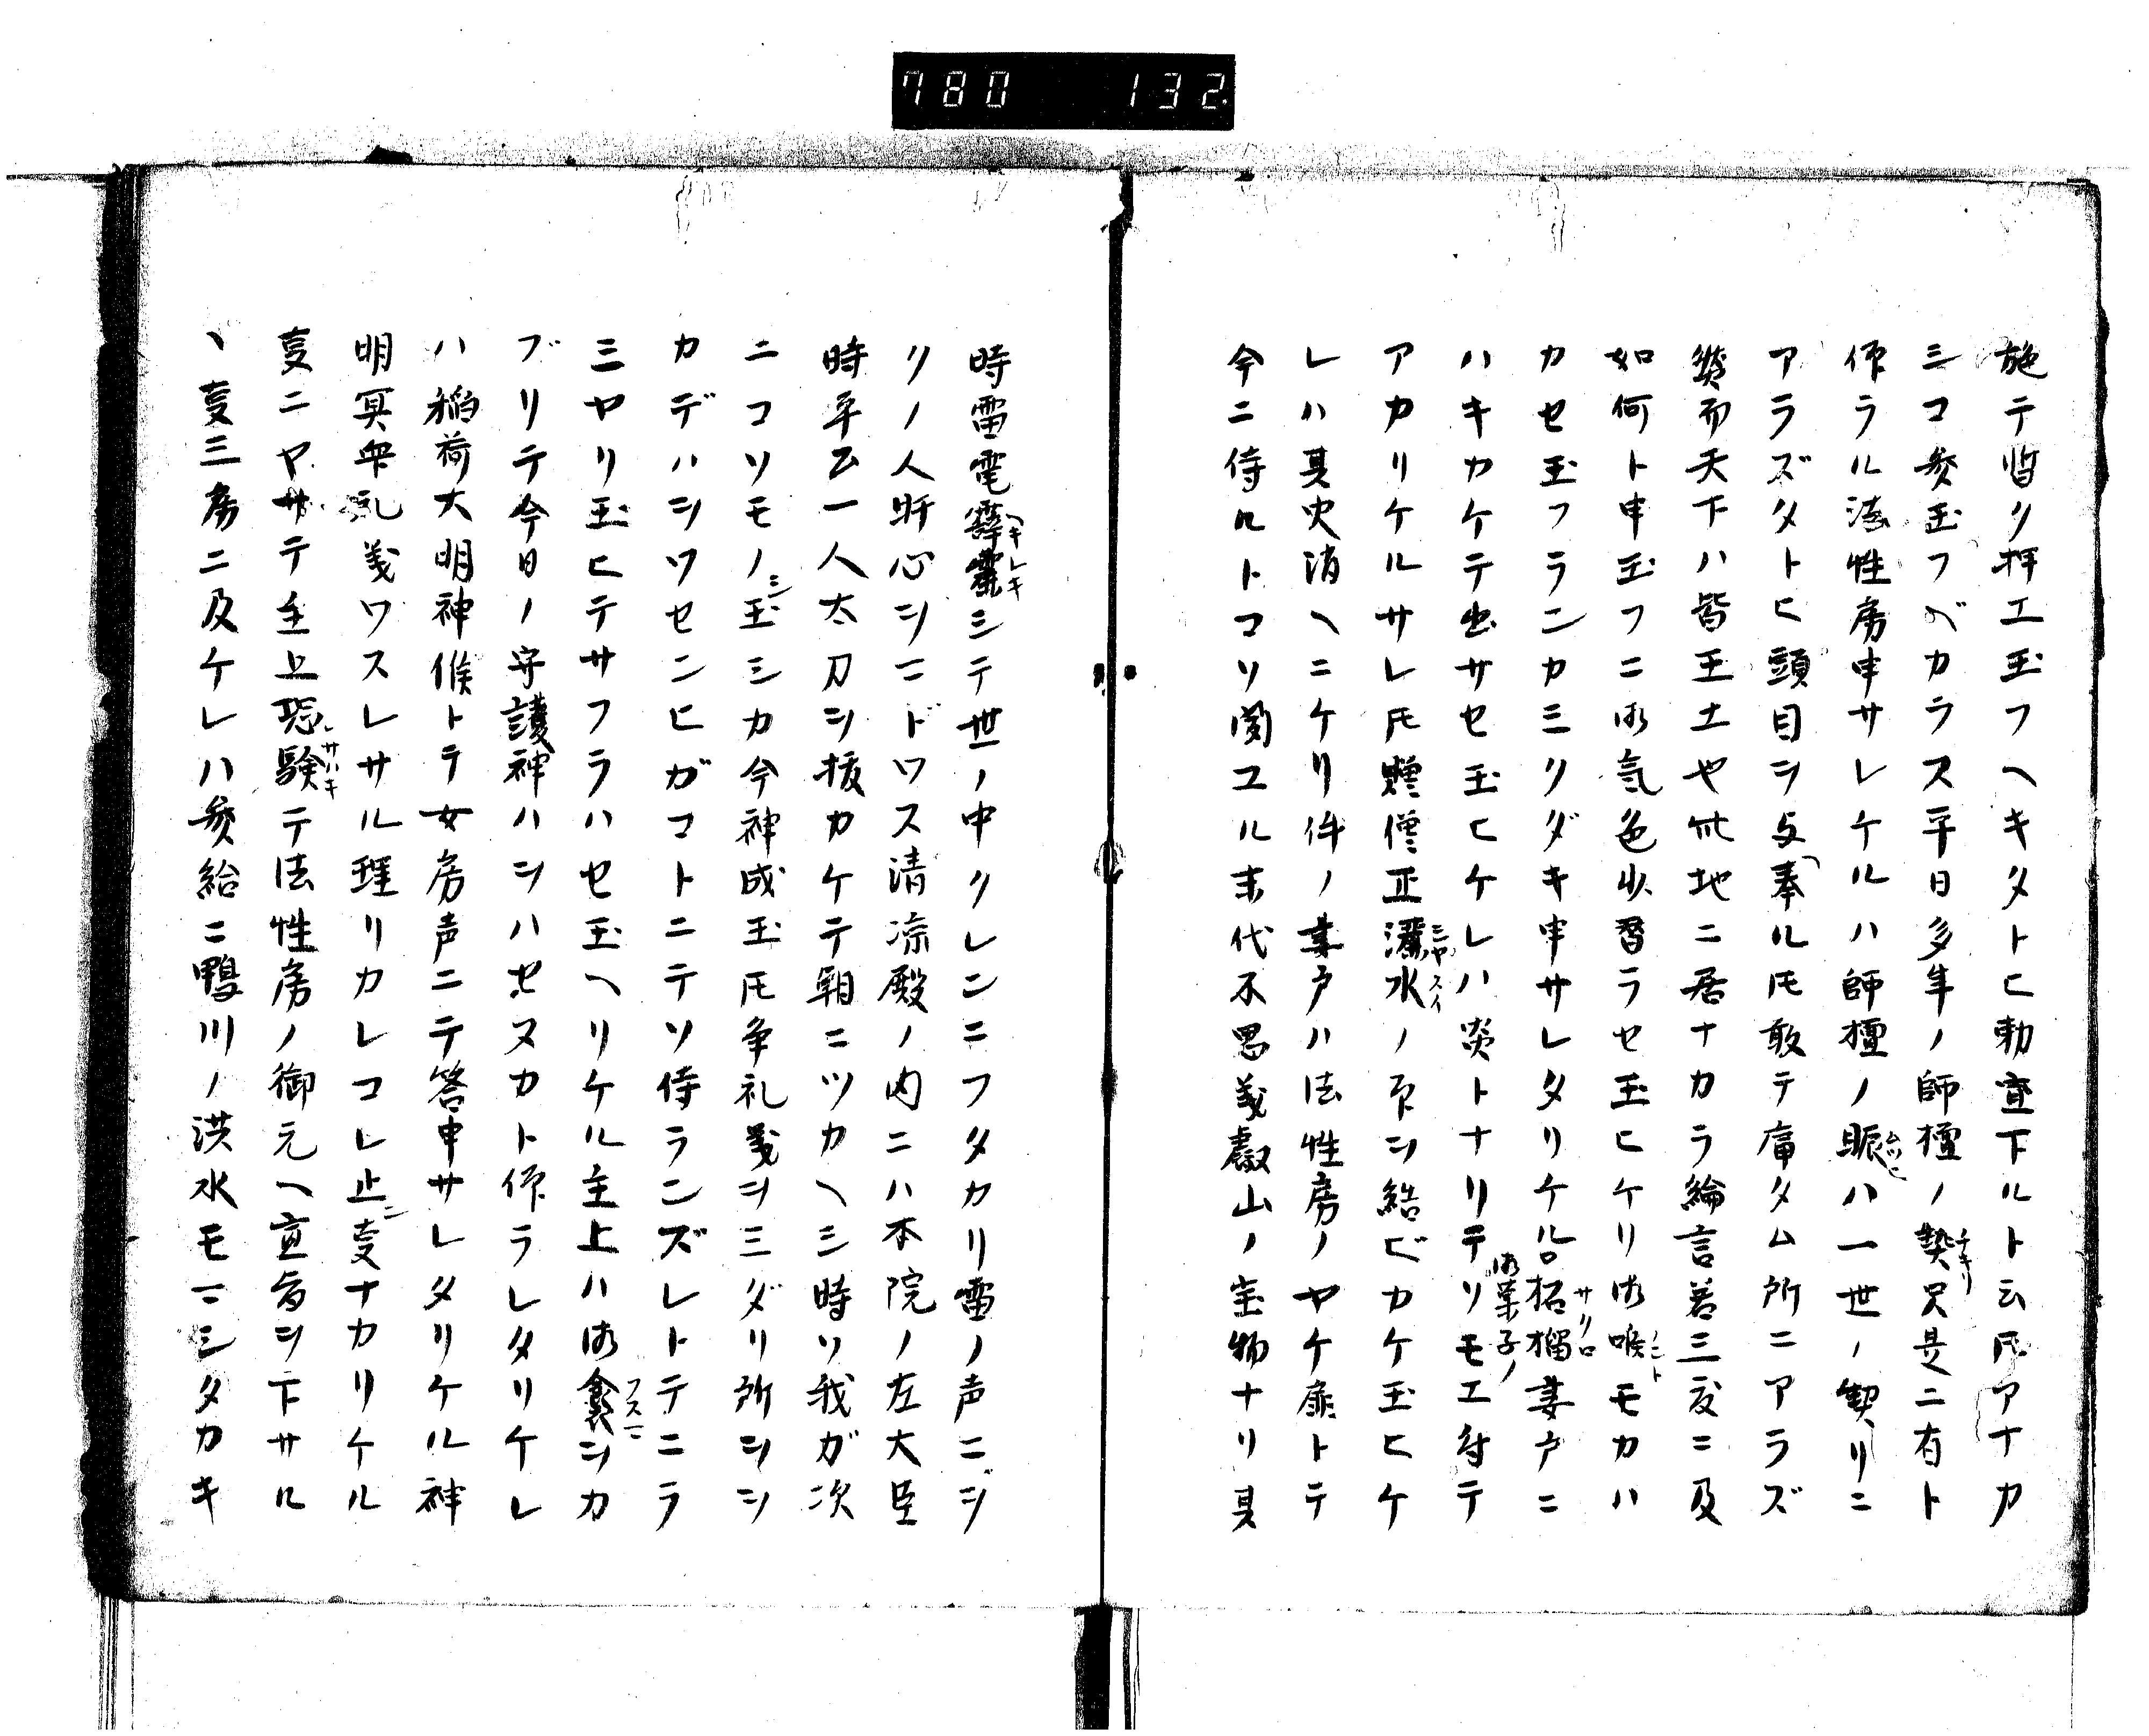 780 132
施テ皆ク拝エ玉フヘキタトヒ勅宣下ルト云𪜈アナカ
シコ参玉フベカラス平日多年ノ師檀ノ契只是ニ有ト
作ラル法性房申サレケルハ師檀ノ眤ハ一世ノ契リニ
アラズタトヒ頭目ヲ与奉ル𪜈敢テ痛タム所ニアラズ
然而天下ハ皆王土也此地ニ居ナカラ綸言若三度ニ及
如何ト申玉フニ御気色少替ラセ玉ヒケリ御喉モカハ
カセ玉フランカミクダキ申サレタリケル柘榴妻戸ニ
ハキカケテ出サセ玉ヒケレハ炎トナリテ御菓子ノソモエ付テ
アカリケルサレ𪜈贈僧正灑水ノ印ヲ結ビカケ玉ヒケ
レハ其火消ヘニケリ件ノ妻戸ハ法性房ノヤケ扉トテ
今ニ侍ルトコソ聞エル末代不思義叡山ノ宝物ナリ其
時雷電霹靂シテ世ノ中クレンニフタカリ雷ノ声ニヲ
リノ人肝心ヲマドワス清涼殿ノ内ニハ本院ノ左大臣
時平公一人太刀ヲ抜カケテ朝ニツカヘシ時ソ我ガ次
ニコソモノシ玉シカ今神成玉𪜈争礼義ヲミダリ所ヲヲ
カデハヲワセンヒガコトニテソ侍ランズレトテニラ
ミヤリ玉ヒテサフラハセ玉ヘリケル主上ハ御衾ヲカ
ブリテ今日ノ守護神ハヲハセヌカト作ラレタリケレ
ハ稲荷大明神候トテ女房声ニテ答申サレタリケル神
明冥衆礼義ワスレサル理リカレコレ止事ナカリケル
事ニヤサテ主上恐験テ法性房ノ御元ヘ宣旨ヲ下サル
丶事三度ニ及ケレハ参給ニ鴨川ノ洪水モマシタカキ